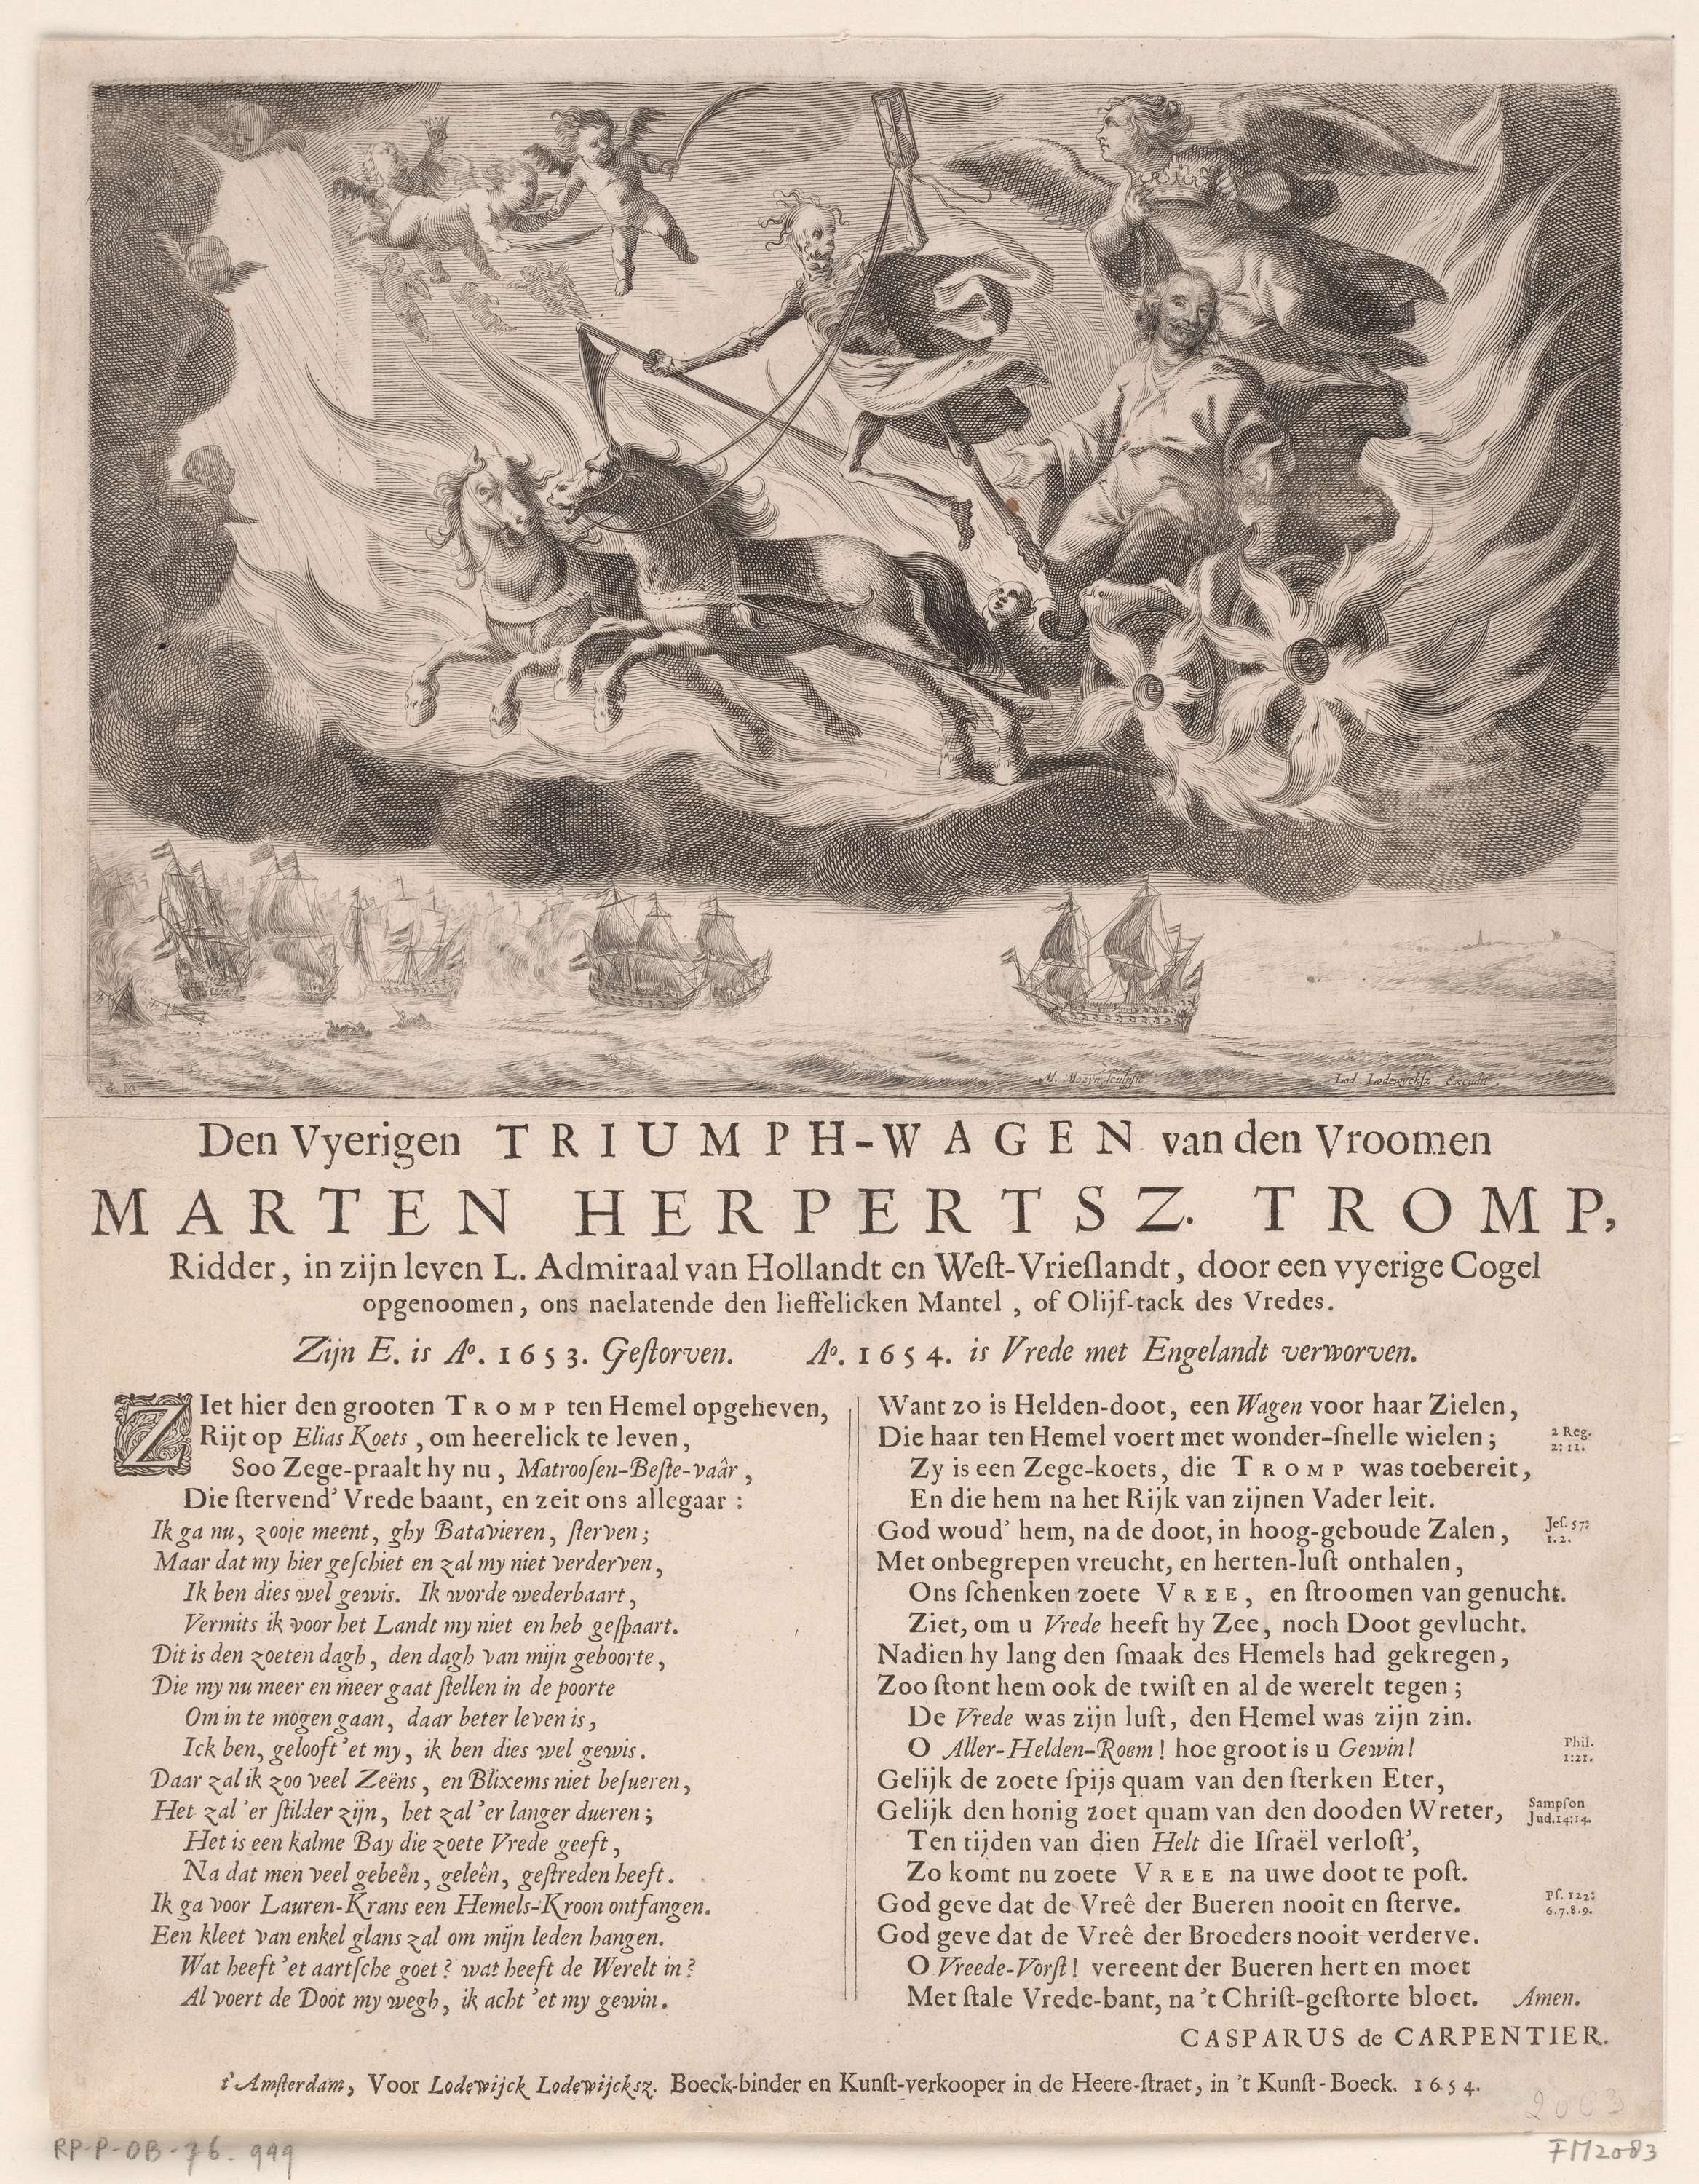 M. Mozyn sculpsit
Lod. Lodewycksz Excudit.
Den Vyerigen TRIUMPH-WAGEN van den Vroomen
MARTEN HERPERTSZ. TROMP,
Ridder, in zijn leven L. Admiraal van Hollandt en Weſt-Vrieſlandt, door een vyerige Cogel
opgenoomen, ons naelatende den lieffelicken Mantel, of Olijf-tack des Vredes.
Zijn E. is Aº. 1653. Geſtorven. Aº. 1654. is Vrede met Engelandt verworven.
ZIet hier den grooten TROMP ten Hemel opgeheven,
Rijt op Elias Koets, om heerelick te leven,
Soo Zege-praalt hy nu, Matrooſen-Beſte-vaâr,
Die ſtervend' Vrede baant, en zeit ons allegaar:
Ik ga nu, zooje meent, ghy Batavieren, ſterven;
Maar dat my hier geſchiet en zal my niet verderven,
Ik ben dies wel gewis. Ik worde wederbaart,
Vermits ik voor het Landt my niet en heb geſpaart.
Dit is den zoeten dagh, den dagh van mijn geboorte,
Die my nu meer en meer gaat ſtellen in de poorte
Om in te mogen gaan, daar beter leven is,
Ick ben, gelooft 'et my, ik ben dies wel gewis.
Daar zal ik zoo veel Zeëns, en Blixems niet beſueren,
Het zal 'er ſtilder zijn, het zal 'er langer dueren;
Het is een kalme Bay die zoete Vrede geeft,
Na dat men veel gebeên, geleên, geſtreden heeft.
Ik ga voor Lauren-Krans een Hemels-Kroon ontfangen.
Een kleet van enkel glans zal om mijn leden hangen.
Wat heeft 'et aartſche goet? wat heeft de Werelt in?
Al voert de Doot my wegh, ik acht 'et my gewin.
Want zo is Helden-doot, een Wagen voor haar Zielen,
Die haar ten Hemel voert met wonder-ſnelle wielen; 2 Reg.
2: 11.
Zy is een Zege-koets, die TROMP was toebereit,
En die hem na het Rijk van zijnen Vader leit.
God woud' hem, na de doot, in hoog-geboude Zalen, Jeſ. 57:
1. 2.
Met onbegrepen vreucht, en herten-luſt onthalen,
Ons ſchenken zoete VREE, en ſtroomen van genucht.
Ziet, om u Vrede heeft hy Zee, noch Doot gevlucht.
Nadien hy lang den ſmaak des Hemels had gekregen,
Zoo ſtont hem ook de twiſt en al de werelt tegen;
De Vrede was zijn luſt, den Hemel was zijn zin.
O Aller-Helden-Roem! hoe groot is u Gewin! Phil.
1:21.
Gelijk de zoete ſpijs quam van den ſterken Eter,
Gelijk den honig zoet quam van den dooden Wreter, Sampſon
Jud.14:14.
Ten tijden van dien Helt die Iſraël verloſt',
Zo komt nu zoete VREE na uwe doot te poſt.
God geve dat de Vreê der Bueren nooit en ſterve. Pſ. 122:
6.7.8.9.
God geve dat de Vreê der Broeders nooit verderve.
O Vreede-Vorſt! vereent der Bueren hert en moet
Met ſtale Vrede-bant, na 't Chriſt-geſtorte bloet. Amen.
CASPARUS de CARPENTIER.
t'Amſterdam, Voor Lodewijck Lodewijckſz. Boeck-binder en Kunſt-verkooper in de Heere-ſtraet, in 't Kunſt-Boeck. 1654.
RP-P-OB-76.999
FM2083